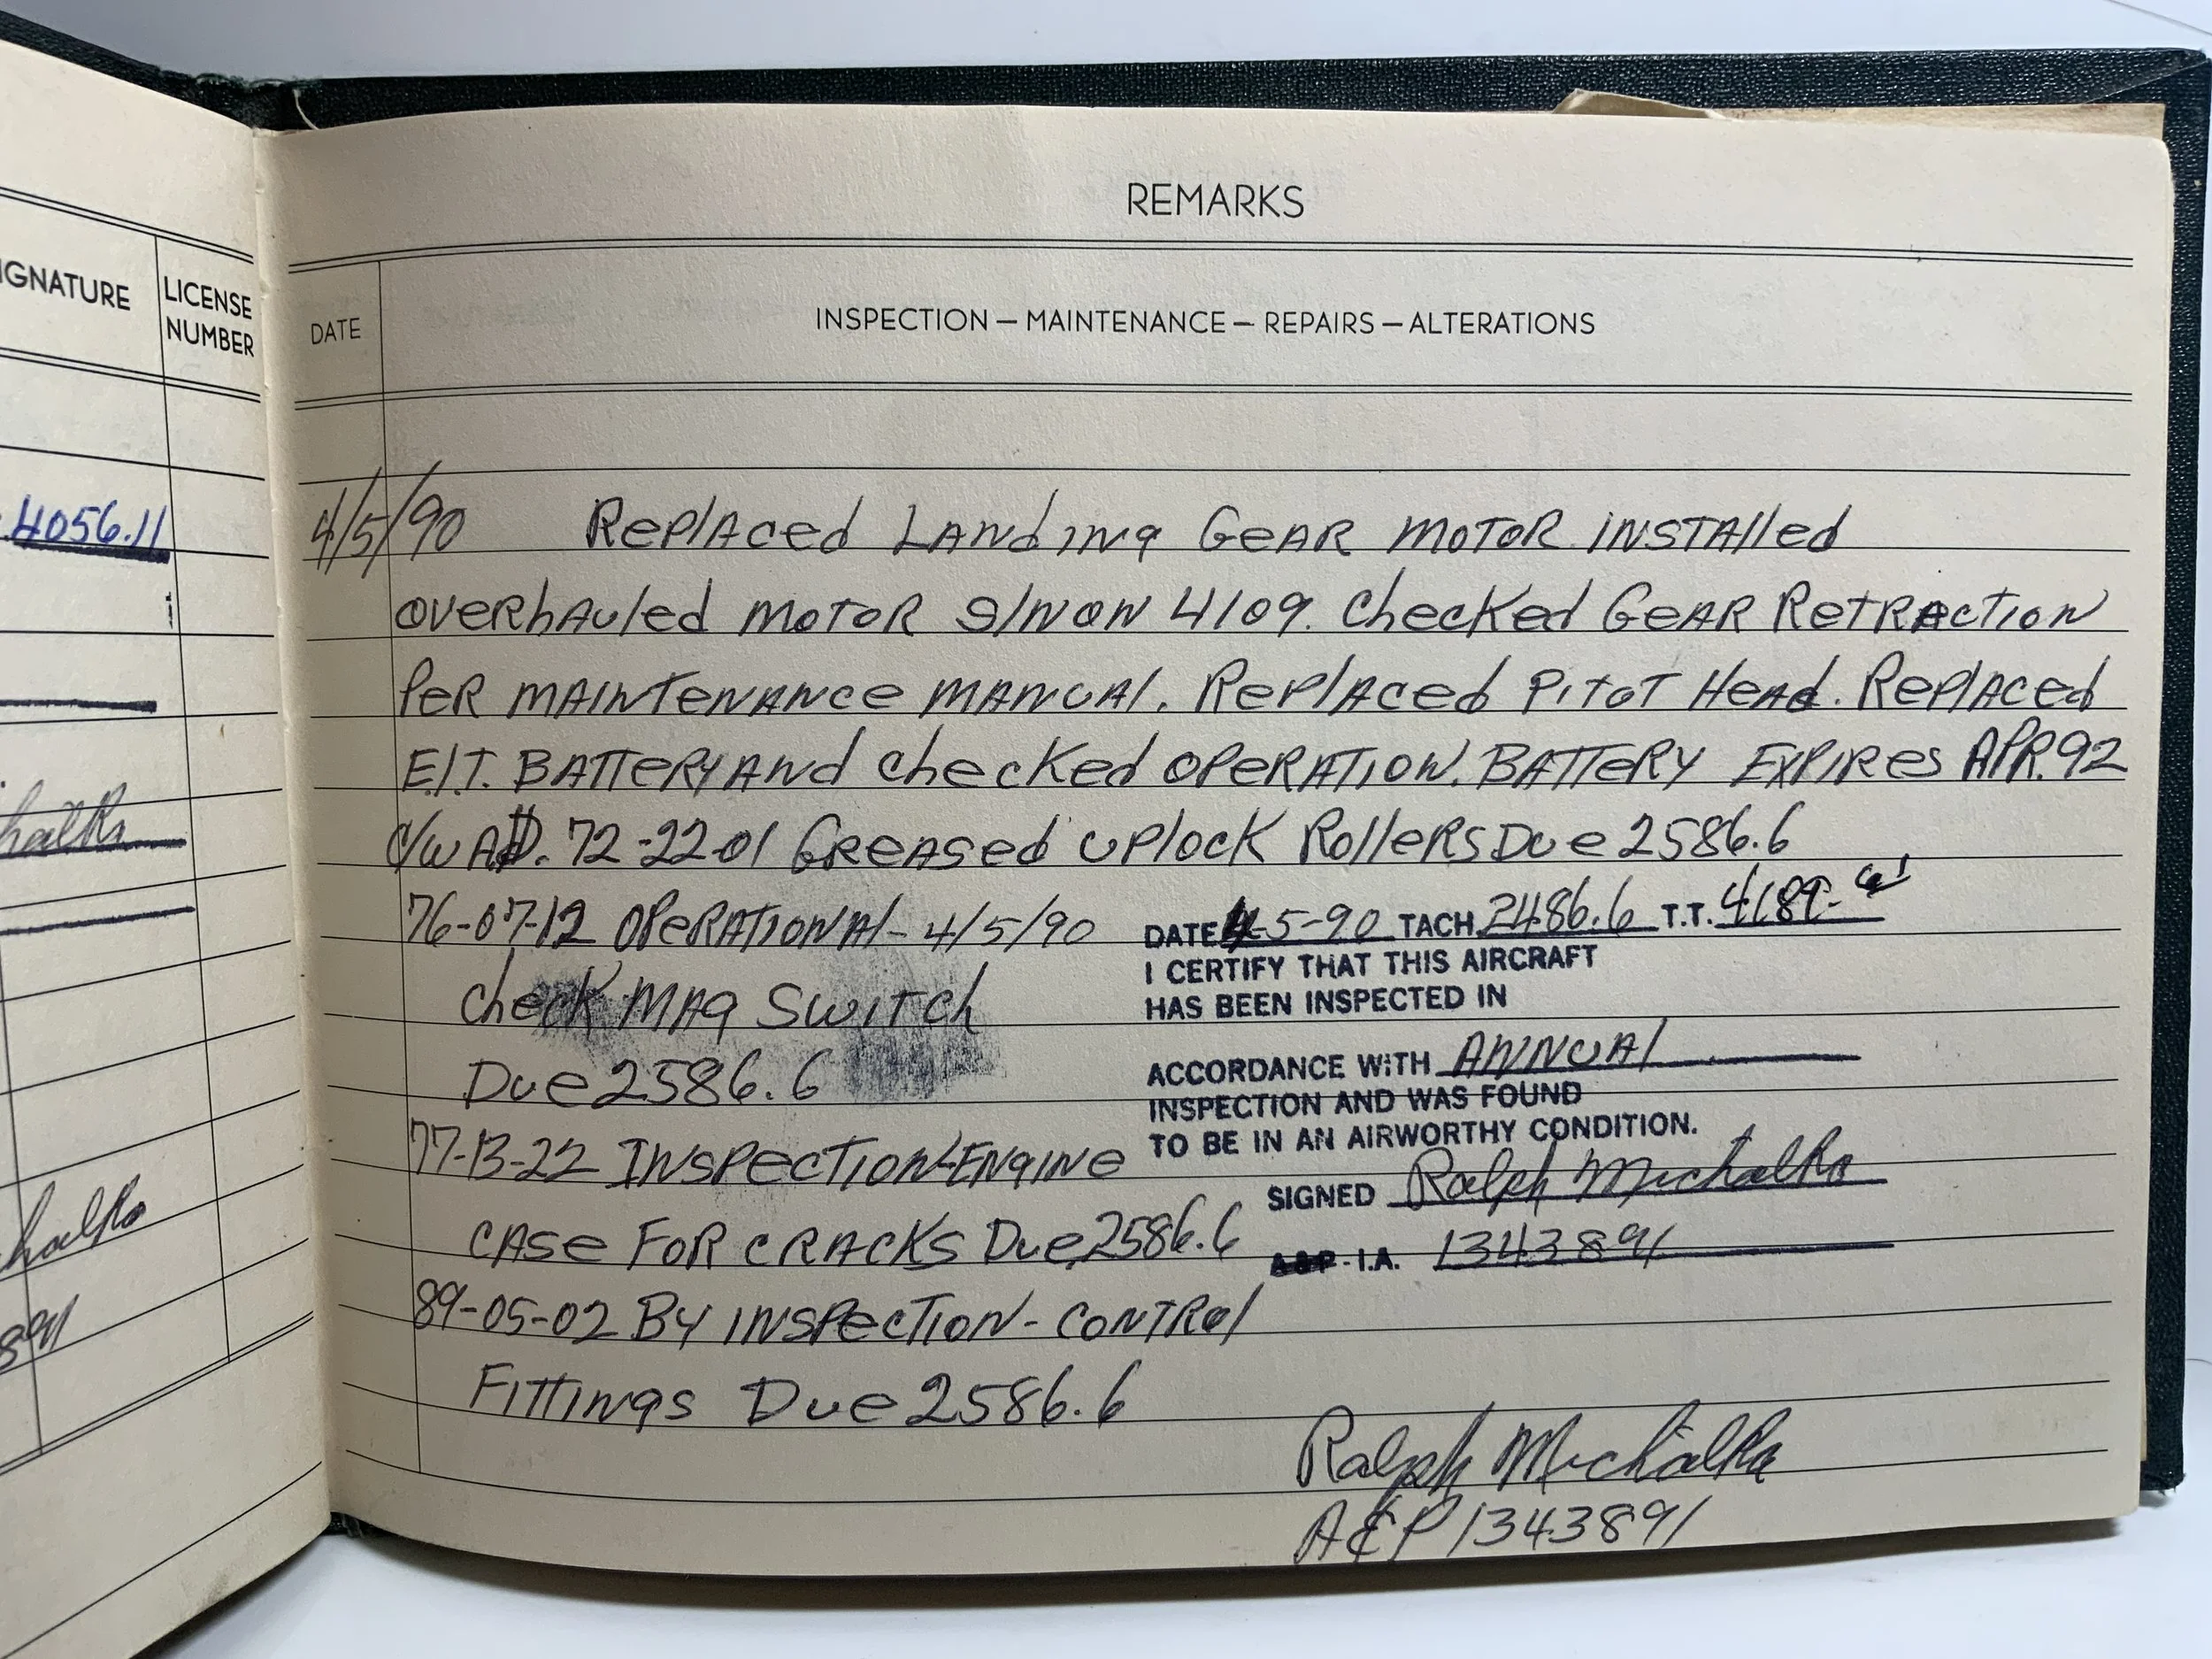 IGNATURE
LICENSE
NUMBER
4056.11
halka
halka
891
REMARKS
DATE
INSPECTION — MAINTENANCE — REPAIRS — ALTERATIONS
4/5/90 Replaced Landing Gear Motor Installed
Overhauled Motor S/N ON 4109. Checked Gear Retraction
Per Maintenance Manual. Replaced Pitot Head. Replaced
E.I.T. Battery And Checked Operation. Battery Expires APR. 92
C/W AD. 72-22-01 Greased Uplock Rollers Due 2586.6
76-07-12 Operational - 4/5/90
Check Mag Switch
Due 2586.6
77-13-22 Inspection-Engine
Case For Cracks Due 2586.6
89-05-02 By Inspection - Control
Fittings Due 2586.6
DATE 4-5-90 TACH 2486.6 T.T. 4189-
I CERTIFY THAT THIS AIRCRAFT
HAS BEEN INSPECTED IN
ACCORDANCE WITH Annual
INSPECTION AND WAS FOUND
TO BE IN AN AIRWORTHY CONDITION.
SIGNED Ralph Michalka
A&P - I.A. 1343891
Ralph Michalka
A&P 1343891